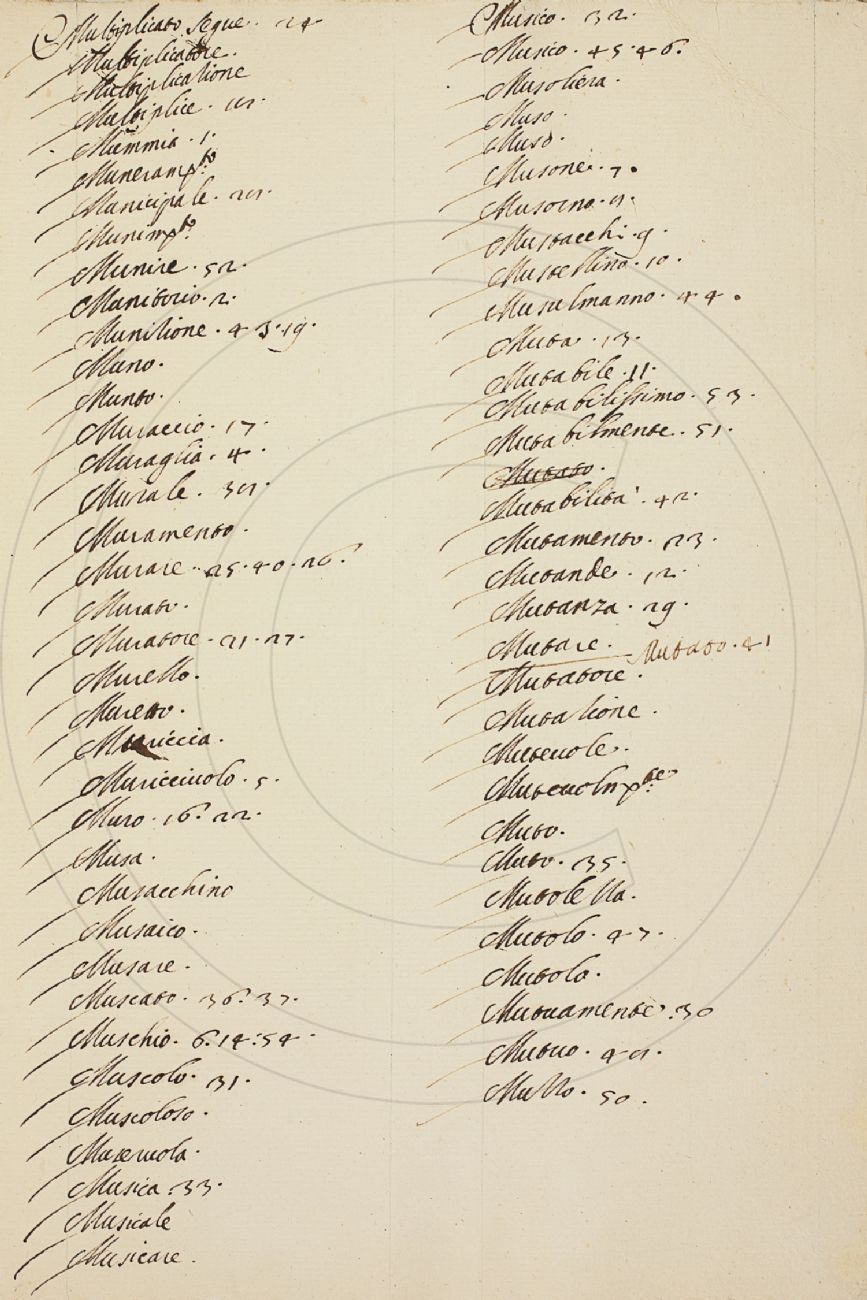 Multiplicato segue. 24.
Multiplicatore.
Multiplicatione
Multiplice. 
Mummia. 1.
Municipale. 
Munire. 52.
Munitorio. 2.
Munitione. 43. 19.
Muno.
Munto.
Muraccio. 17.
Muraglia. 4.
Murale. 
Muramento.
Murare. 25. 40. 26.
Murato.
Muratore. 21. 27.
Murello.
Muretto.
Muriccia.
Muricciuolo. 5.
Muro. 16. 22.
Musa.
Musacchino
Musaico.
Musare.
Muscato. 36. 37.
Muschio. 6. 14. 54.
Muscolo. 31.
Muscoloso.
Museruola.
Musica. 33.
Musicale
Musicare.
Musico. 32.
Musico. 45. 46.
Musoliera.
Muso.
Muso.
Musone. 7.
Musorno. 
Mustacchi. 9.
Mustellino. 10.
Musulmanno. 44.
Muta. 13.
Mutabile. 11.
Mutabilissimo. 53.
Mutabilmente. 51.
Mutato.
Mutabilità. 42.
Mutamento. 23.
Mutande. 12.
Mutanza. 29.
Mutare. Mutato. 41
Mutatore.
Mutatione.
Muteuole.
Muto.
Muto. 35.
Mutolella.
Mutolo. 47.
Mutolo.
Mutuamente. 30
Mutuo. 
Mullo. 50.